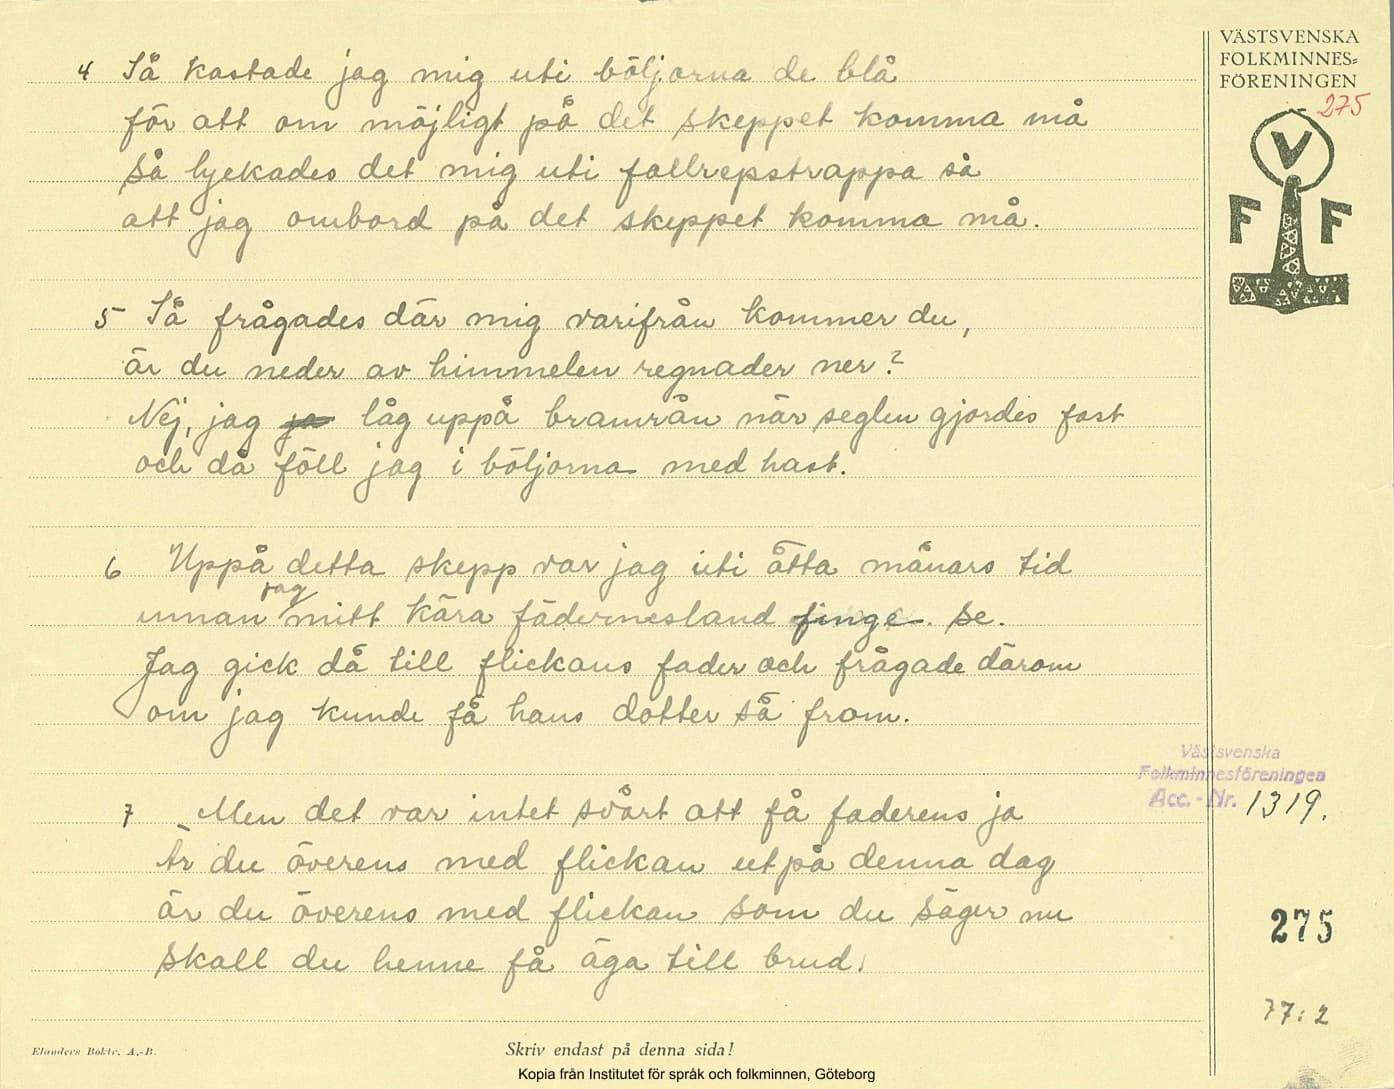 VÄSTSVENSKA
FOLKMINNES=
FÖRENINGEN
275
V
F F
4 Så kastade jag mig uti böljorna de blå
för att om möjligt på det skeppet komma må
Så lyckades det mig uti fallrepstrappa så
att jag ombord på det skeppet komma må.
5 Så frågades där mig varifrån kommer du,
är du neder av himmelen regnader ner?
Nej, jag ja låg uppå bramrån när seglen gjordes fast
och då föll jag i böljorna med hast.
6 Uppå detta skepp var jag uti åtta månars tid
innan jag mitt kära fädernesland finge. se.
Jag gick då till flickans fader och frågade därom
om jag kunde få hans dotter så from.
7 Men det var intet svårt att få faderens ja
Är du överens med flickan ut på denna dag
är du överens med flickan som du säger nu
skall du henne få äga till brud.
Västsvenska
Folkminnesföreningen
Acc.-Nr. 1319.
275
77:2
Elanders Boktr. A.-B.
Skriv endast på denna sida!
Kopia från Institutet för språk och folkminnen, Göteborg